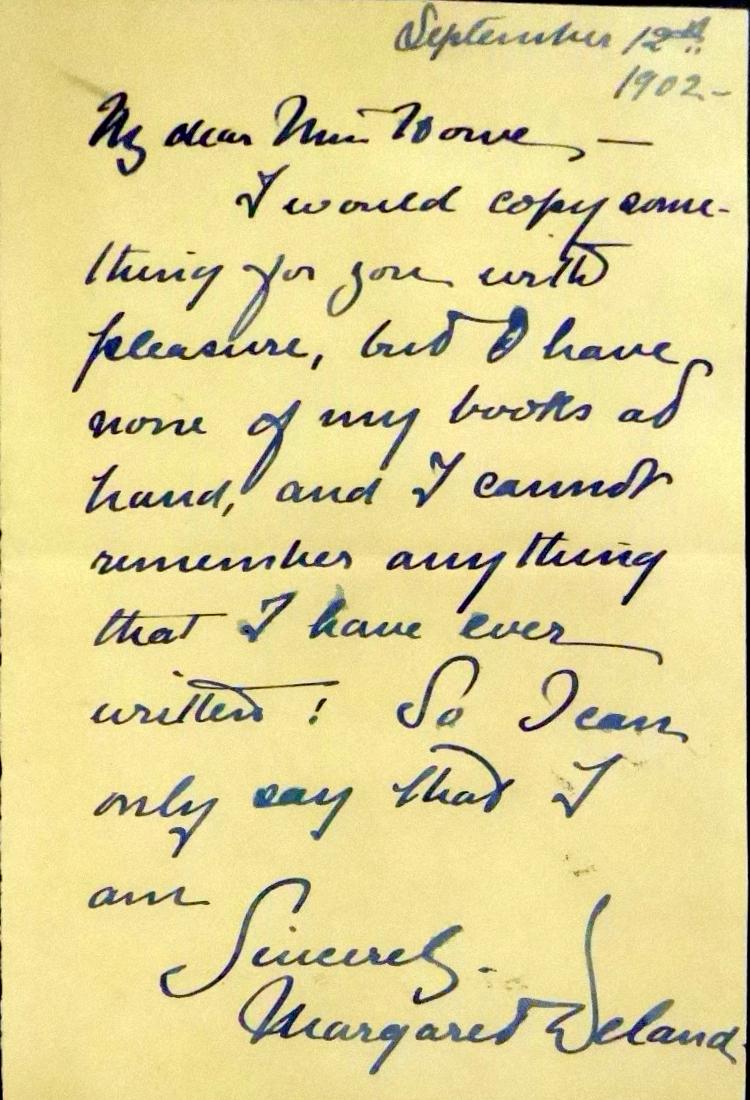 September 12th
1902-
My dear Miss Howe, —
I would copy some-
thing for you with
pleasure, but I have
none of my books at
hand, and I cannot
remember anything
that I have ever
written! So I can
only say that I
am
Sincerely.
Margaret Deland.